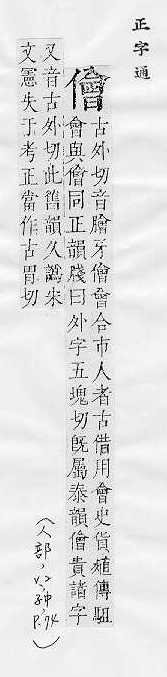 正字通
儈
古外切音膾牙儈會合市人者古借用會史貨殖傳駔
會與儈同正韻牋曰外字五塊切旣屬泰韻儈貴諸字
又音古外切此舊韻久譌宋
文憲失于考正當作古胃切
(人部, 子中, P.74)